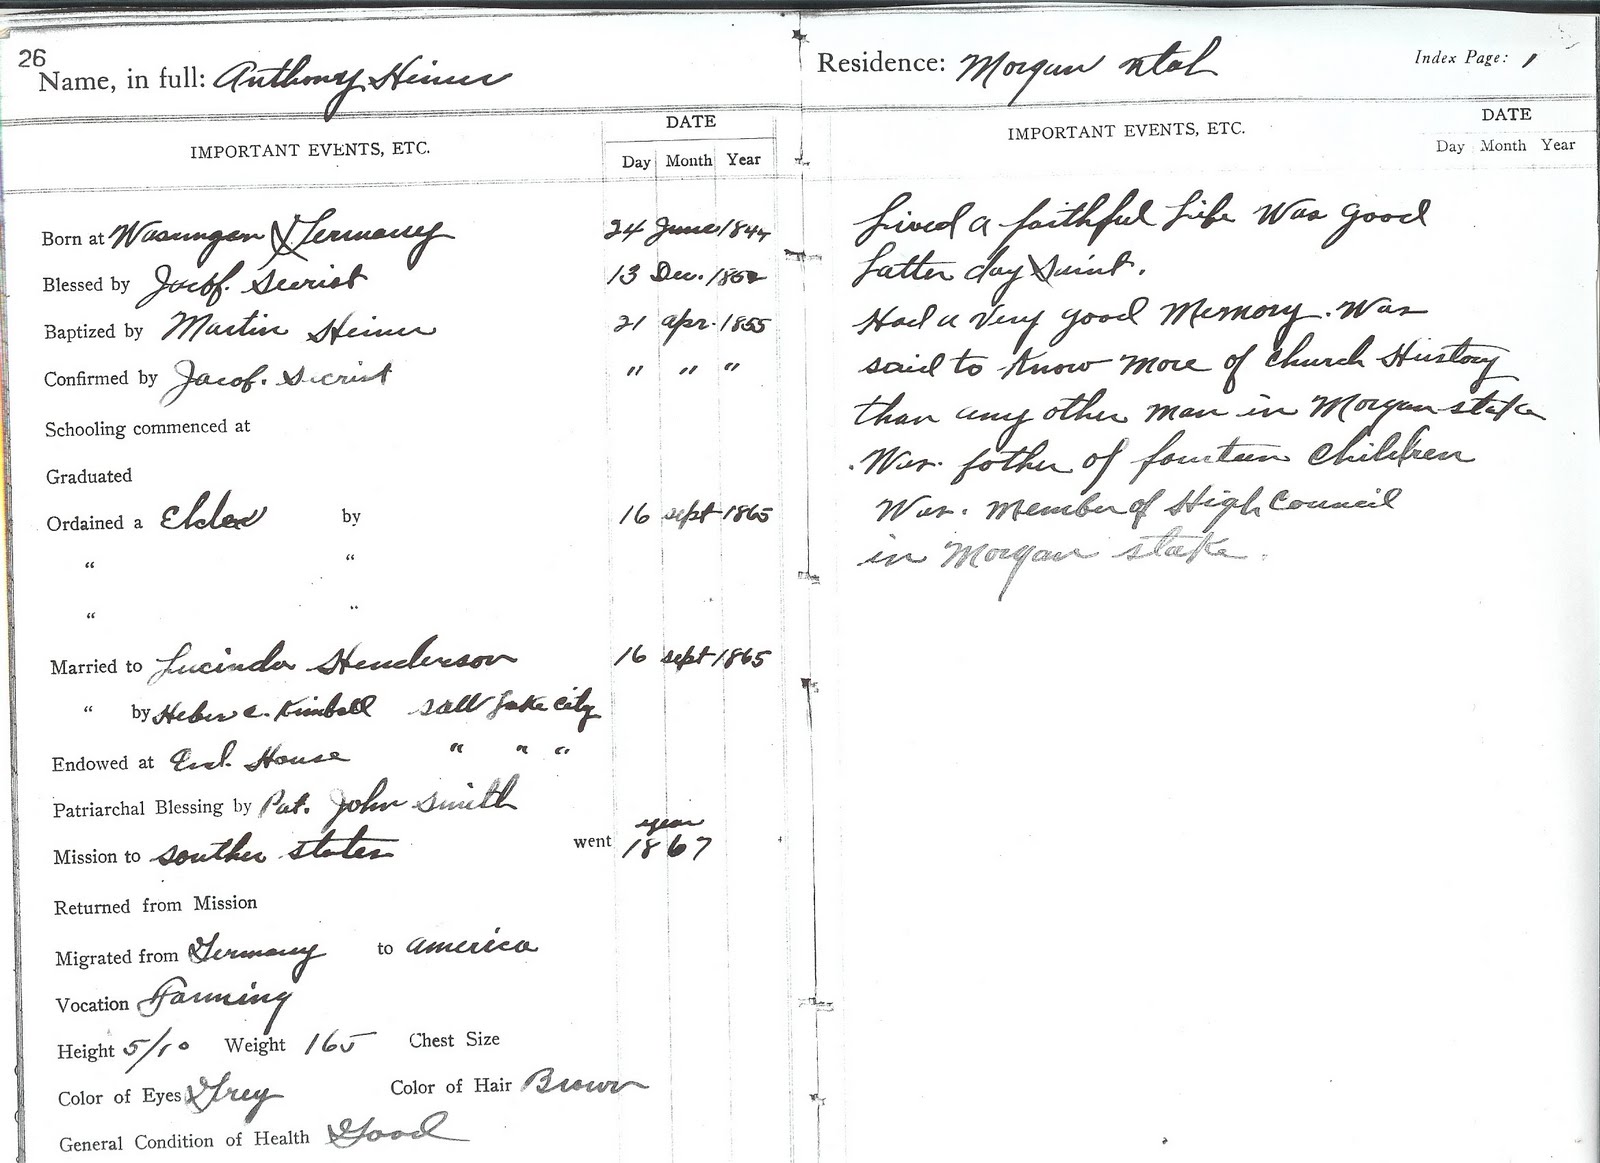 26
Name, in full: Anthony Heiner
IMPORTANT EVENTS, ETC.
DATE
Day Month Year
Born at Wasungen Germany 24 June 1844
Blessed by Jacof. Secrist 13 Dec. 1852
Baptized by Martin Heiner 21 apr. 1855
Confirmed by Jacof. Secrist " " "
Schooling commenced at
Graduated
Ordained a Elder by 16 sept 1865
" "
" "
Married to Lucinda Henderson 16 sept 1865
" by Heber C. Kimball Salt Lake City
Endowed at End. House " " "
Patriarchal Blessing by Pat. John Smith
year
Mission to souther states went 1867
Returned from Mission
Migrated from Germany to america
Vocation Farming
Height 5/10 Weight 165 Chest Size
Color of Eyes Grey Color of Hair Brown
General Condition of Health Good
Residence: Morgan utah Index Page: 1
IMPORTANT EVENTS, ETC.
DATE
Day Month Year
Lived a faithful Life Was good
Latter day Saint.
Had a very good Memory. Was
said to Know more of church History
than any other man in Morgan stake
Was. father of fourteen children
Was. Member of High Council
in Morgan stake.